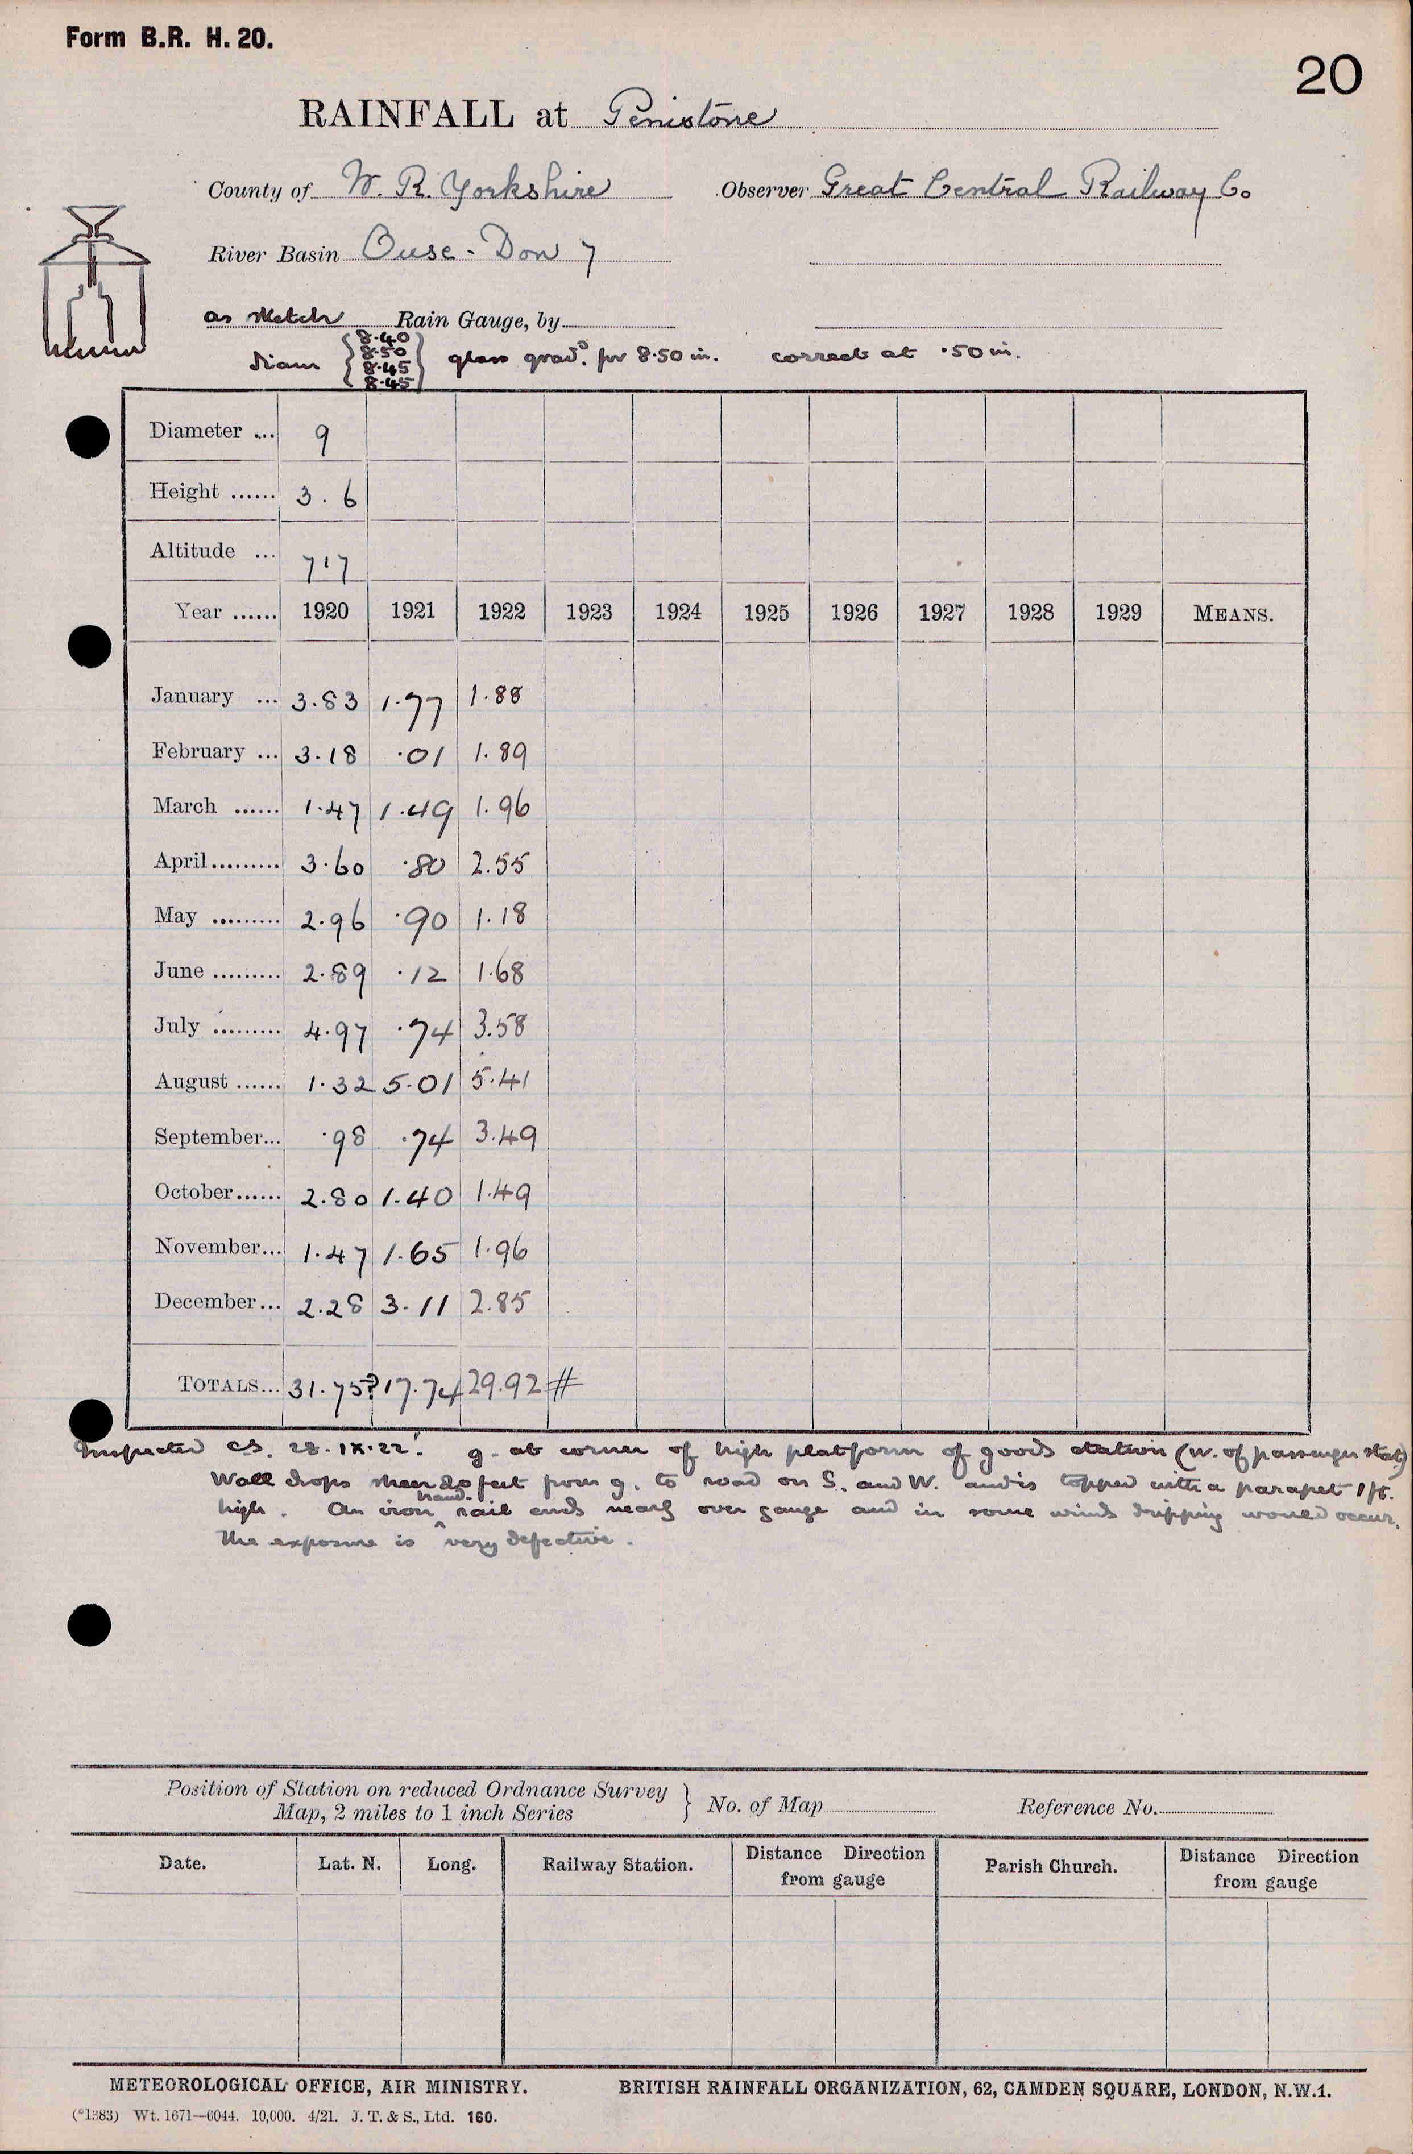 Form B.R. H. 20.
20
RAINFALL at Penistone
County of W. R. Yorkshire Observer Great Central Railway Co
River Basin Ouse - Don 7
as sketch Rain Gauge, by
diam { 8.40 8.50 8.45 8.45 } glass grad.d for 8.50 in. correct at .50 in.
Diameter ... 9
Height ...... 3 . 6
Altitude ... 717
Year ...... 1920 1921 1922 1923 1924 1925 1926 1927 1928 1929 MEANS.
January ... 3.83 1.77 1.88
February ... 3.18 .01 1.89
March ...... 1.47 1.49 1.96
April ......... 3.60 .80 2.55
May ......... 2.96 .90 1.18
June ......... 2.89 .12 1.68
July ......... 4.97 .74 3.58
August ...... 1.32 5.01 5.41
September... .98 .74 3.49
October...... 2.80 1.40 1.49
November... 1.47 1.65 1.96
December... 2.28 3.11 2.85
TOTALS... 31.75? 17.74 29.92 #
Inspected CS. 28.IX.22. g. at corner of high platform of goods station (W. of passenger stat)
Wall drops sheer 20 feet from g. to road on S. and W. and is topped with a parapet 1 ft.
high. An iron hand rail ends nearly over gauge and in some winds dripping would occur.
The exposure is very defective.
Position of Station on reduced Ordnance Survey
Map, 2 miles to 1 inch Series } No. of Map Reference No.
Date. Lat. N. Long. Railway Station. Distance Direction from gauge Parish Church. Distance Direction from gauge
METEOROLOGICAL OFFICE, AIR MINISTRY. BRITISH RAINFALL ORGANIZATION, 62, CAMDEN SQUARE, LONDON, N.W.1.
(*1383) Wt. 1671—6044. 10,000. 4/21. J. T. & S., Ltd. 160.